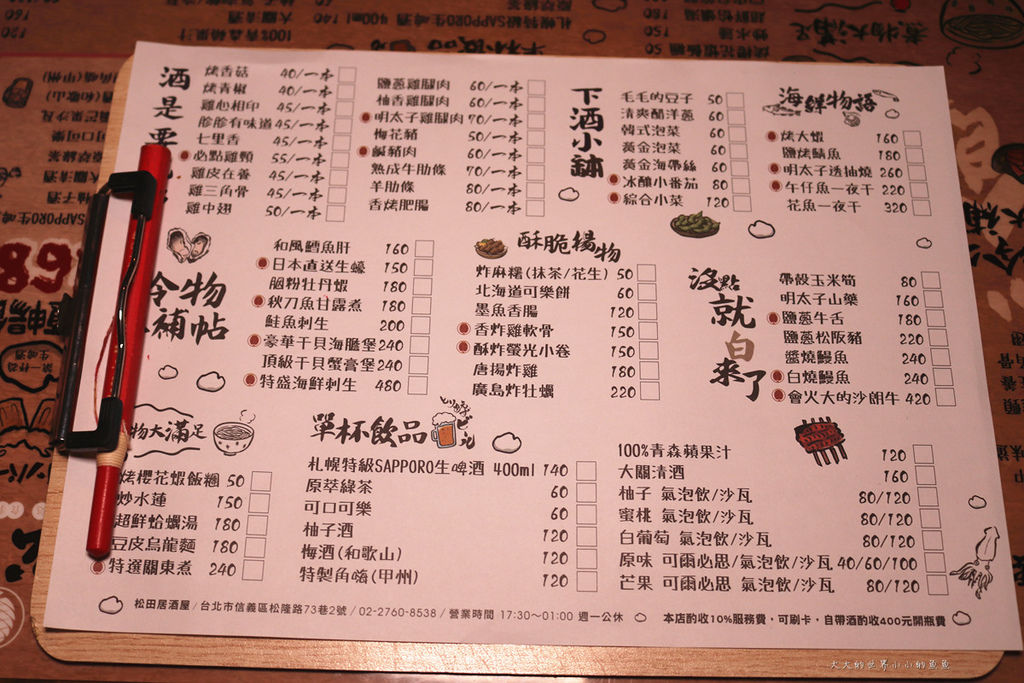 酒是要
烤香菇 40/一本
烤青椒 40/一本
雞心相印 45/一本
胗胗有味道 45/一本
七里香 45/一本
必點雞頸 55/一本
雞皮在養 45/一本
雞三角骨 45/一本
雞中翅 50/一本
鹽蔥雞腿肉 60/一本
柚香雞腿肉 60/一本
明太子雞腿肉 70/一本
梅花豬 50/一本
鹹豬肉 60/一本
熟成牛肋條 70/一本
羊肋條 80/一本
香烤肥腸 80/一本
下酒小缽
毛毛的豆子 50
清爽醋洋蔥 60
韓式泡菜 60
黃金泡菜 60
黃金海帶絲 60
冰釀小番茄 80
綜合小菜 120
海鮮物語
烤大蝦 160
鹽烤鯖魚 180
明太子透抽燒 260
午仔魚一夜干 220
花魚一夜干 320
冷物
補帖
和風鱈魚肝 160
日本直送生蠔 150
胭粉牡丹蝦 180
秋刀魚甘露煮 180
鮭魚刺生 200
豪華干貝海膽堡 240
頂級干貝蟹膏堡 240
特盛海鮮刺生 480
酥脆揚物
炸麻糬(抹茶/花生) 50
北海道可樂餅 60
墨魚香腸 120
香炸雞軟骨 150
酥炸螢光小卷 150
唐揚炸雞 180
廣島炸牡蠣 220
沒點就白來了
帶殼玉米筍 80
明太子山藥 160
鹽蔥牛舌 180
鹽蔥松阪豬 220
醬燒鰻魚 240
白燒鰻魚 240
會火大的沙朗牛 420
物大滿足
烤櫻花蝦飯糰 50
炒水蓮 150
超鮮蛤蠣湯 180
豆皮烏龍麵 180
特選關東煮 240
單杯飲品
札幌特級SAPPORO生啤酒 400ml 140
原萃綠茶 60
可口可樂 60
柚子酒 120
梅酒(和歌山) 120
特製角嗨(甲州) 120
100%青森蘋果汁 120
大關清酒 160
柚子 氣泡飲/沙瓦 80/120
蜜桃 氣泡飲/沙瓦 80/120
白葡萄 氣泡飲/沙瓦 80/120
原味 可爾必思/氣泡飲/沙瓦 40/60/100
芒果 可爾必思/氣泡飲/沙瓦 80/120
松田居酒屋/台北市信義區松隆路73巷2號/02-2760-8538/營業時間 17:30～01:00 週一公休
本店酌收10%服務費，可刷卡，自帶酒酌收400元開瓶費
大大的世界小小的魚魚